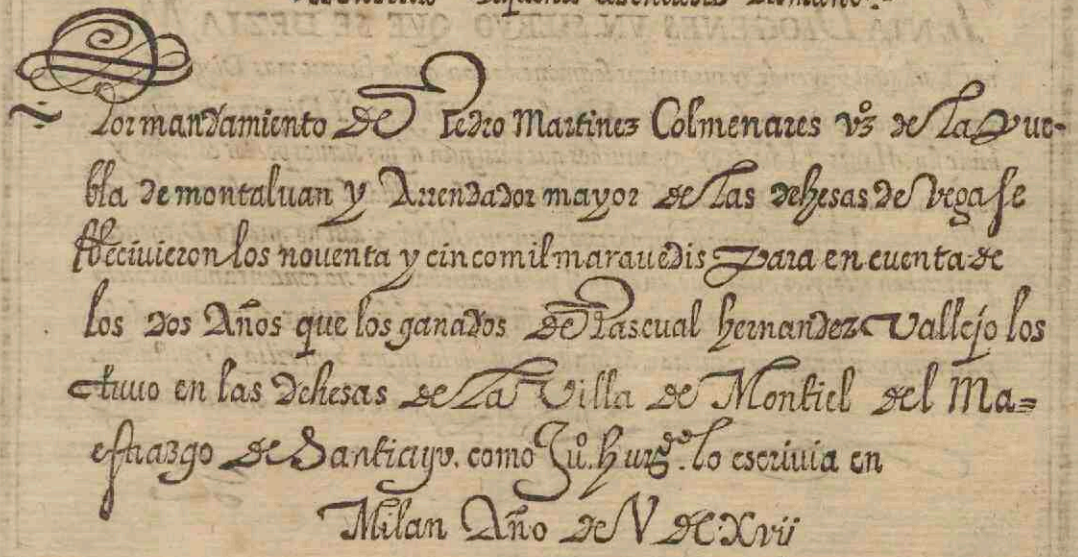 Por mandamiento de Pedro Martinez Colmenares vº de la Pue-
bla de montaluan y Arrendador mayor de las dehesas de Vega se
Recivieron los noventa y cinco mil maravedis para en cuenta de
los dos Años que los ganados de Pascual hernandez Vallejo los
tuuo en las Dehesas de la Villa de Montiel del Ma=
estrazgo de Santiago. como Juº. hurdº. lo escrivia en
Milan Año de